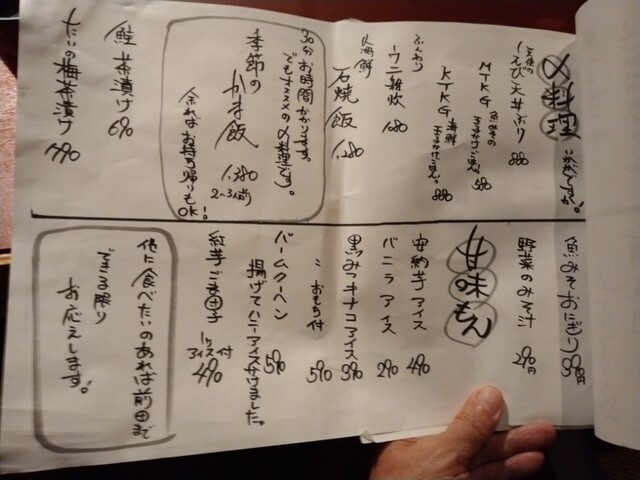 〆料理 いかがですか。
天使のえび天丼ぶり 880
MTKG 魚みその玉子かけごはん。580
KTKG 海鮮玉子かけごはん。880
ふんわりウニ雑炊 1,080
海鮮石焼飯 1,280
30分お時間かかります。
でもオススメの〆料理です。
季節のかま飯 1,380
2〜3人前
余ればお持ち帰りもOK!
鮭茶漬け 690
たいの梅茶漬け 790
魚みそおにぎり 390円
野菜のみそ汁 290円
甘味もん
安納芋アイス 490
バニラアイス 290
黒みつキナコアイス 390
〃 おもち付 590
バームクーヘン
揚げてハニーアイス付けました。590
紅芋ごま団子
アイス付 490
他に食べたいのあれば前田まで
できる限り
お応えします。